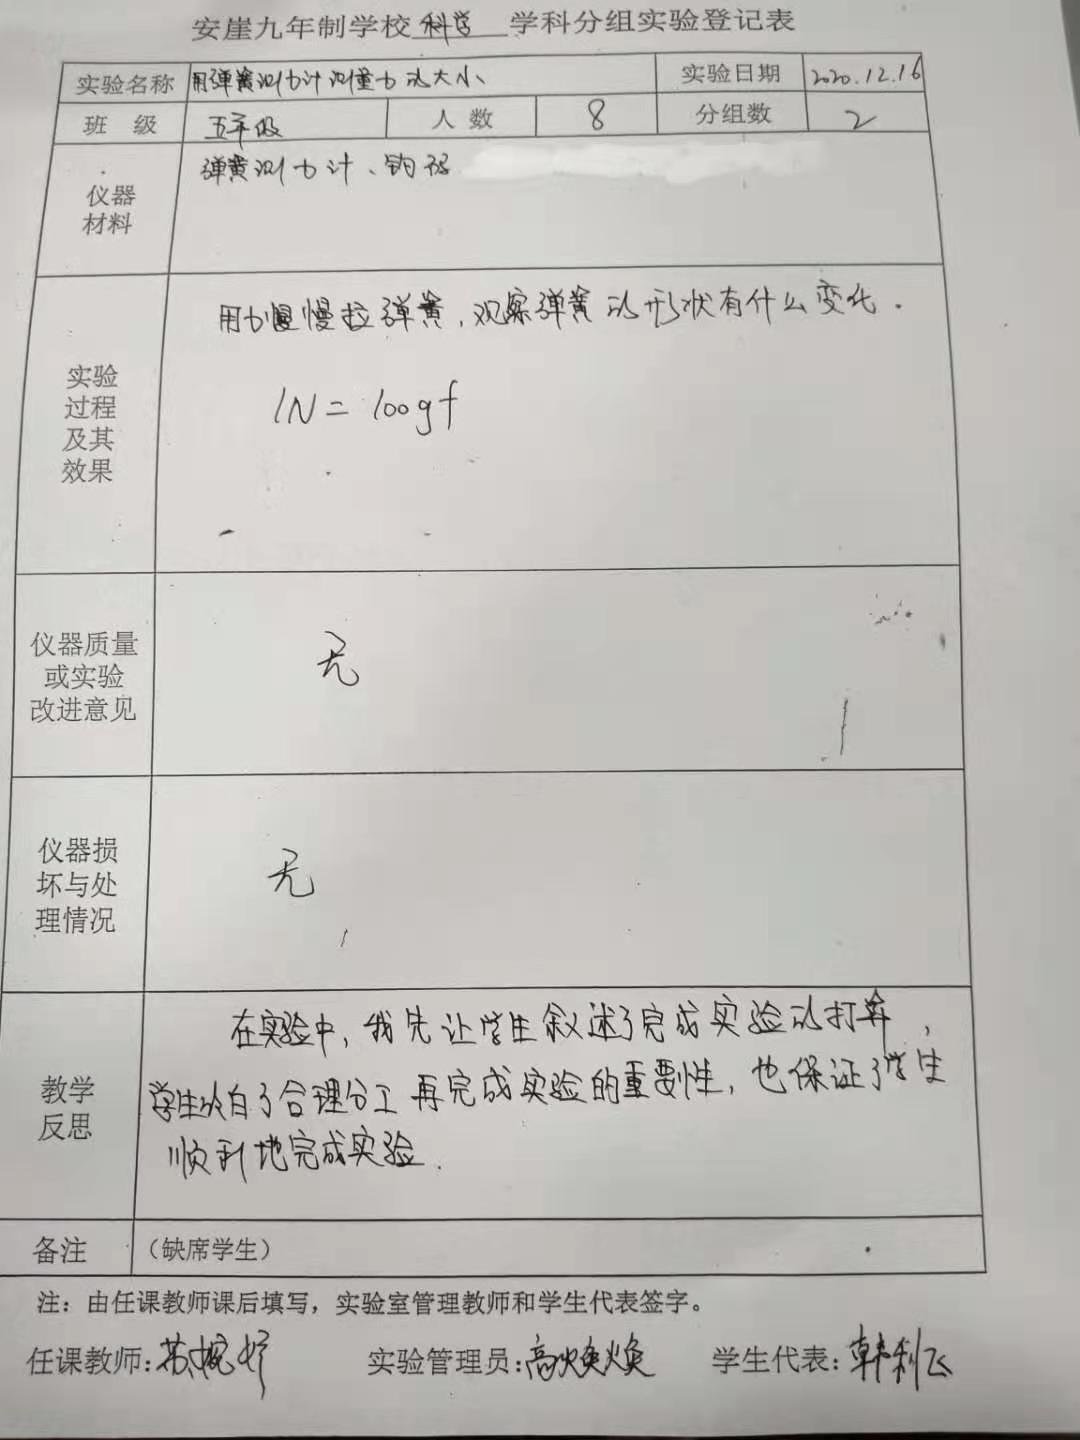 安崖九年制学校 科学 学科分组实验登记表
实验名称 用弹簧测力计测量力的大小 实验日期 2020.12.16
班 级 五年级 人 数 8 分组数 2
仪器材料 弹簧测力计、钩码
实验
过程
及其
效果
用力慢慢拉弹簧,观察弹簧的形状有什么变化.
1N = 100gf
仪器质量
或实验
改进意见
无
仪器损
坏与处
理情况
无
教学
反思
在实验中,我先让学生叙述了完成实验的打算,
学生明白了合理分工再完成实验的重要性,也保证了学生
顺利地完成实验.
备注 (缺席学生)
注：由任课教师课后填写，实验室管理教师和学生代表签字。
任课教师: 实验管理员:高焕焕 学生代表:韩利飞